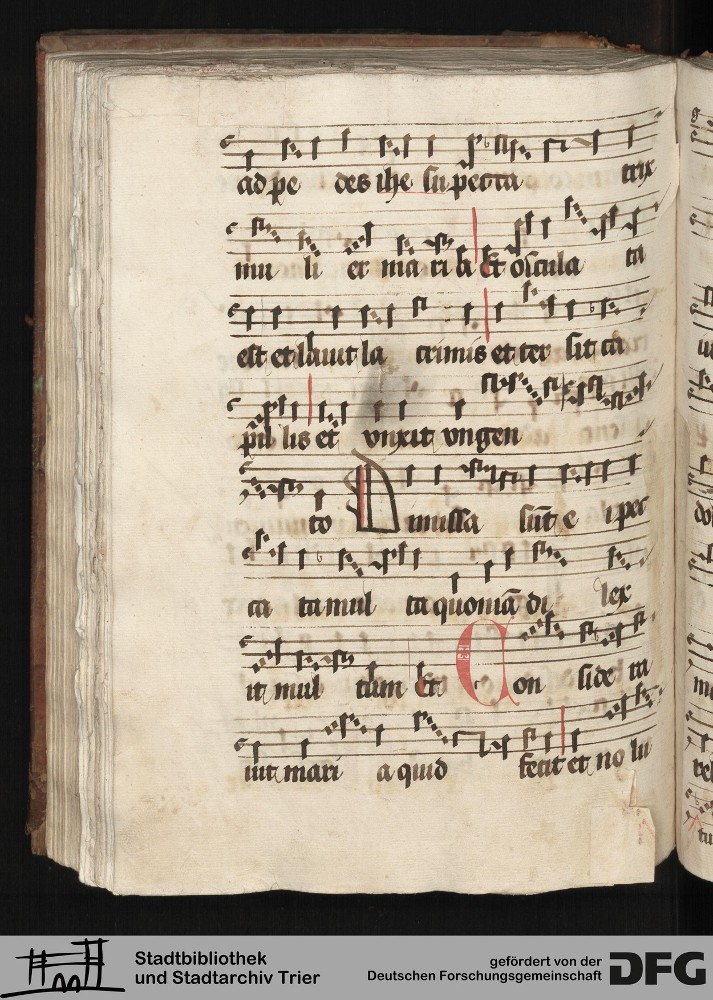 ad pe des ihe su pecca trix
mu li er ma ri a Et oscula ta
est et lauit la crimis et ter sit ca
pil lis et vnxit vngen
to Di missa sūt e i pec
ca ta mul ta quoniā di lex
it mul tum Et Con side ra
uit mari a quid fecit et no lu
Stadtbibliothek
und Stadtarchiv Trier
gefördert von der
Deutschen Forschungsgemeinschaft
DFG